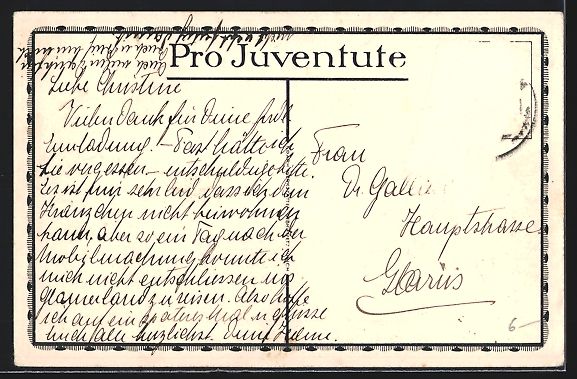 Pro Juventute
Liebe Christine
Vielen Dank für Deine frdl.
Einladung. – Fast hätte ich
sie vergessen – entschuldige bitte
Es ist mir sehr leid dass ich dem
Kränzchen nicht beiwohnen
kann, aber so ein Tag nach der
Mobilmachung konnte ich
mich nicht entschliessen ins
Glarnerland zu reisen. Also hoffe
ich auf ein späteres Mal u. grüsse
Euch alle herzlichst. Deine
Frau
Dr Galli
Hauptstrasse
Glarus
6-